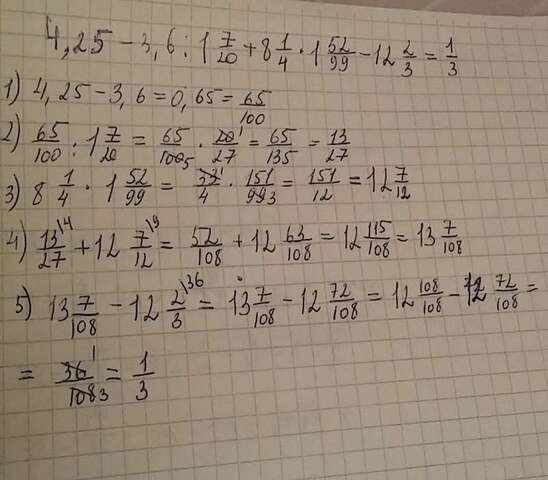 4,25 - 3,6 : 1 7/20 + 8 1/4 · 1 52/99 - 12 2/3 = 1/3
1) 4,25 - 3,6 = 0,65 = 65/100
2) 65/100 : 1 7/20 = 65/100 5 · 20 1/27 = 65/135 = 13/27
3) 8 1/4 · 1 52/99 = 33 1/4 · 151/99 3 = 151/12 = 12 7/12
4) 13\4/27 + 12 7\9/12 = 52/108 + 12 63/108 = 12 115/108 = 13 7/108
5) 13 7/108 - 12 2\36/3 = 13 7/108 - 12 72/108 = 12 108/108 - 12 72/108 =
= 36 1/108 3 = 1/3